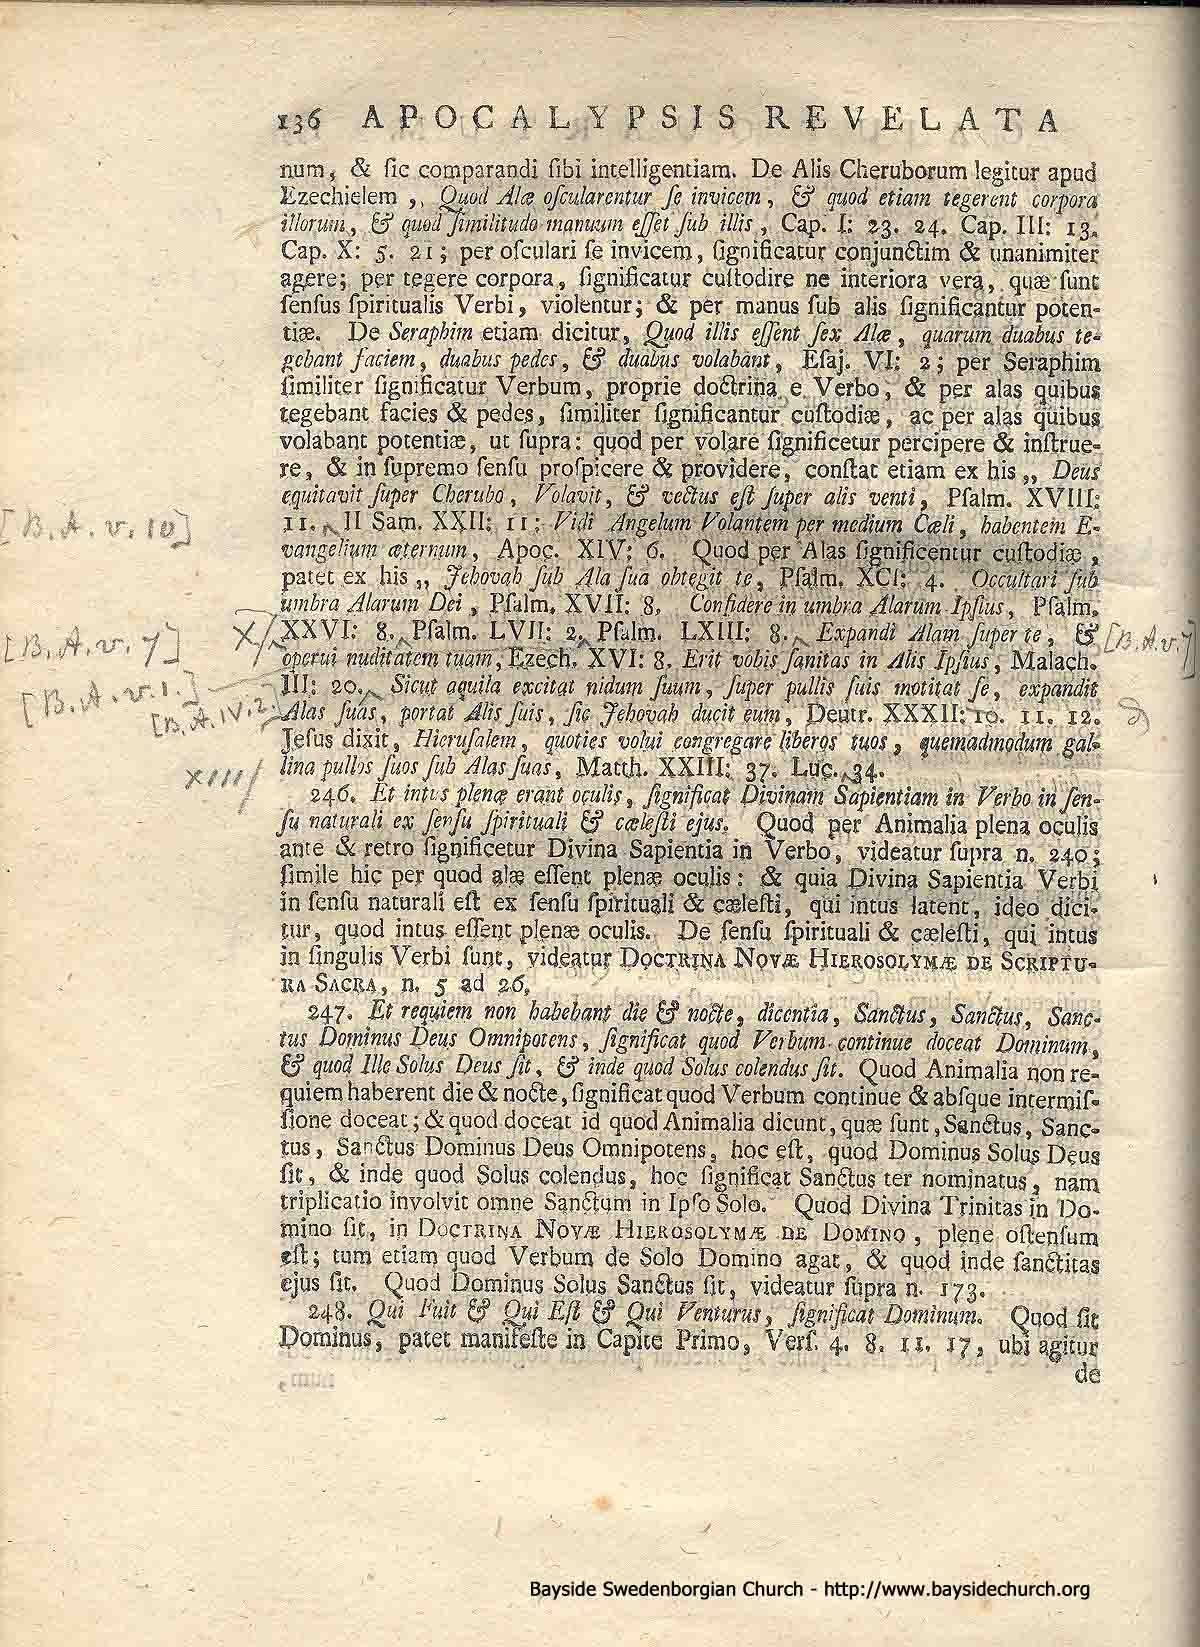 136 APOCALYPSIS REVELATA
num, & ſic comparandi ſibi intelligentiam. De Alis Cheruborum legitur apud
Ezechielem ,, Quod Alæ oſcularentur ſe invicem, & quod etiam tegerent corpora
illorum, & quod ſimilitudo manuum eſſet ſub illis, Cap. I: 23. 24. Cap. III: 13.
Cap. X: 5. 21; per oſculari ſe invicem, ſignificatur conjunctim & unanimiter
agere; per tegere corpora, ſignificatur cuſtodire ne interiora vera, quæ ſunt
ſenſus ſpiritualis Verbi, violentur; & per manus ſub alis ſignificantur poten-
tiæ. De Seraphim etiam dicitur, Quod illis eſſent ſex Alæ, quarum duabus te-
gebant faciem, duabus pedes, & duabus volabant, Eſaj. VI: 2; per Seraphim
ſimiliter ſignificatur Verbum, proprie doctrina e Verbo, & per alas quibus
tegebant facies & pedes, ſimiliter ſignificantur cuſtodiæ, ac per alas quibus
volabant potentiæ, ut ſupra: quod per volare ſignificetur percipere & inſtrue-
re, & in ſupremo ſenſu proſpicere & providere, conſtat etiam ex his ,, Deus
equitavit ſuper Cherubo, Volavit, & vectus eſt ſuper alis venti, Pſalm. XVIII:
[B.A.v. 10]
11. II Sam. XXII: 11; Vidi Angelum Volantem per medium Cæli, habentem E-
vangelium æternum, Apoc. XIV: 6. Quod per Alas ſignificentur cuſtodiæ,
patet ex his ,, Jehovah ſub Ala ſua obtegit te, Pſalm. XCI: 4. Occultari ſub
umbra Alarum Dei, Pſalm. XVII: 8. Confidere in umbra Alarum Ipſius, Pſalm.
X/
XXVI: 8. Pſalm. LVII: 2. Pſalm. LXIII: 8. Expandi Alam ſuper te, &
[B.A.v. 7]
[B.A.v. 7]
operui nuditatem tuam, Ezech. XVI: 8. Erit vobis ſanitas in Alis Ipſius, Malach.
[B.A.v. 1.]
III: 20. Sicut aquila excitat nidum ſuum, ſuper pullis ſuis motitat ſe, expandit
[B.A.IV.2.]
Alas ſuas, portat Alis ſuis, ſic Jehovah ducit eum, Deutr. XXXII: 10. 11. 12.
Jeſus dixit, Hieruſalem, quoties volui congregare liberos tuos, quemadmodum gal-
XIII/
lina pullos ſuos ſub Alas ſuas, Matth. XXIII: 37. Luc. 34.
246. Et intus plenæ erant oculis, ſignificat Divinam Sapientiam in Verbo in ſen-
ſu naturali ex ſenſu ſpirituali & cæleſti ejus. Quod per Animalia plena oculis
ante & retro ſignificetur Divina Sapientia in Verbo, videatur ſupra n. 240;
ſimile hic per quod alæ eſſent plenæ oculis: & quia Divina Sapientia Verbi
in ſenſu naturali eſt ex ſenſu ſpirituali & cæleſti, qui intus latent, ideo dici-
tur, quod intus eſſent plenæ oculis. De ſenſu ſpirituali & cæleſti, qui intus
in ſingulis Verbi ſunt, videatur DOCTRINA NOVÆ HIEROSOLYMÆ DE SCRIPTU-
RA SACRA, n. 5 ad 26.
247. Et requiem non habebant die & nocte, dicentia, Sanctus, Sanctus, Sanc-
tus Dominus Deus Omnipotens, ſignificat quod Verbum continue doceat Dominum,
& quod Ille Solus Deus ſit, & inde quod Solus colendus ſit. Quod Animalia non re-
quiem haberent die & nocte, ſignificat quod Verbum continue & abſque intermiſ-
ſione doceat; & quod doceat id quod Animalia dicunt, quæ ſunt, Sanctus, Sanc-
tus, Sanctus Dominus Deus Omnipotens, hoc eſt, quod Dominus Solus Deus
ſit, & inde quod Solus colendus, hoc ſignificat Sanctus ter nominatus, nam
triplicatio involvit omne Sanctum in Ipſo Solo. Quod Divina Trinitas in Do-
mino ſit, in DOCTRINA NOVÆ HIEROSOLYMÆ DE DOMINO, plene oſtenſum
eſt; tum etiam quod Verbum de Solo Domino agat, & quod inde ſanctitas
ejus ſit. Quod Dominus Solus Sanctus ſit, videatur ſupra n. 173.
248. Qui Fuit & Qui Eſt & Qui Venturus, ſignificat Dominum. Quod ſit
Dominus, patet manifeſte in Capite Primo, Verſ. 4. 8. 11. 17, ubi agitur
de
Bayside Swedenborgian Church - http://www.baysidechurch.org